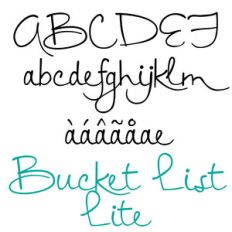 ABCDEF
abcdefghijklm
àáâãåæ
Bucket List
Lite